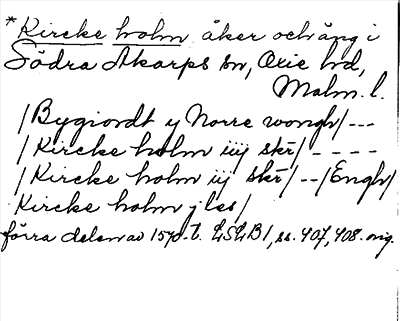 *Kircke holm åker och äng i
Södra Åkarps sn, Oxie hd,
Malm. l.
/Bygiordt y Norre wongh/---
/Kircke holm iiij skr/ - - - -
/Kircke holm iij skr/--/Engh/
Kircke holm j les/
förra delen av 1570-t. LSLB1, ss. 407, 408. orig.